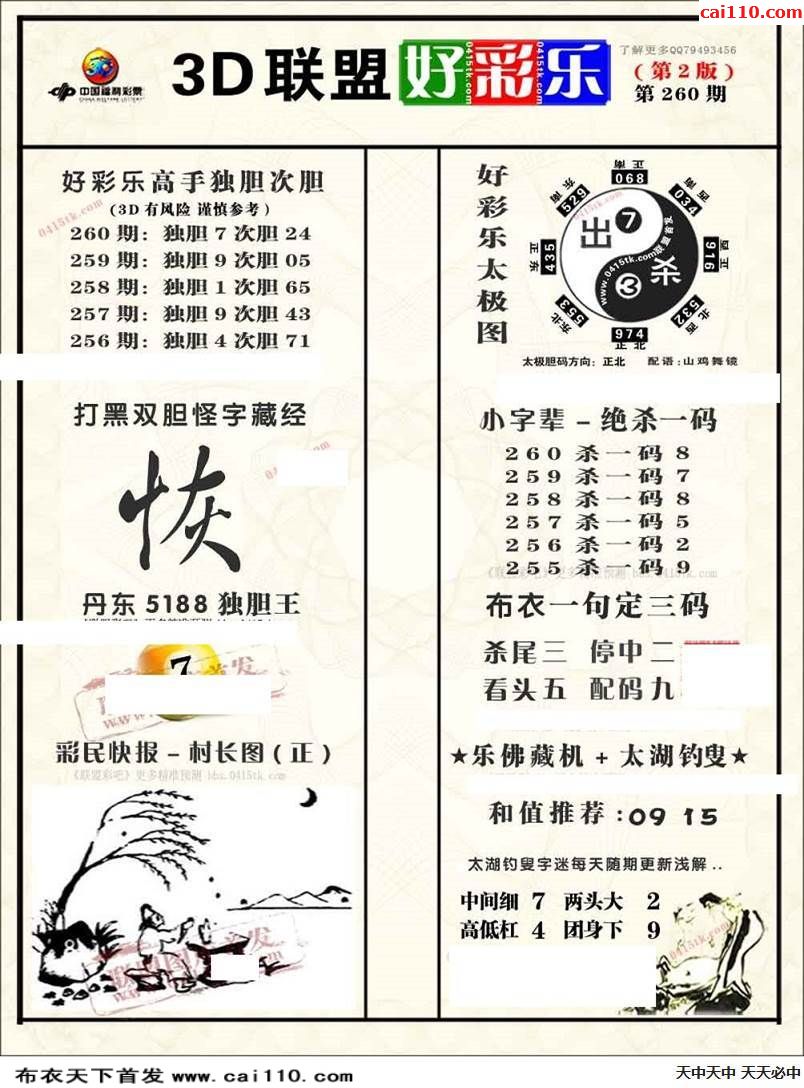 cai110.com
中国福利彩票
CHINA WELFARE LOTTERY
3D联盟 好彩乐
0415tk.com
0415tk.com
了解更多QQ79493456
(第2版)
第260期
好彩乐高手独胆次胆
(3D有风险 谨慎参考)
0415tk.com
260期: 独胆7次胆24
259期: 独胆9次胆05
258期: 独胆1次胆65
257期: 独胆9次胆43
256期: 独胆4次胆71
好彩乐太极图
正南
068
西南
034
正西
916
西北
532
正北
974
东北
553
正东
435
东南
529
0415tk.com
出 7
3 杀
www.0415tk.com联盟首发
太极胆码方向: 正北 配语: 山鸡舞镜
打黑双胆怪字藏经
0415tk.com
恢
小字辈-绝杀一码
260 杀一码 8
259 杀一码 7
258 杀一码 8
257 杀一码 5
256 杀一码 2
255 杀一码 9
《联盟彩吧》更多精准预测 bbs.0415tk.com
丹东5188独胆王
7
布衣一句定三码
杀尾三 停中二
看头五 配码九
彩民快报-村长图(正)
《联盟彩吧》更多精准预测 bbs.0415tk.com
★乐佛藏机+太湖钓叟★
和值推荐:09 15
太湖钓叟字迷每天随期更新浅解..
中间细 7 两头大 2
高低杠 4 团身下 9
0415tk.com
布衣天下首发 www.cai110.com
天中天中 天天必中